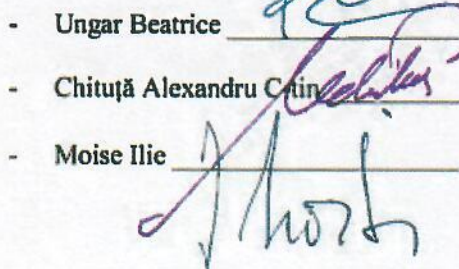 - Ungar Beatrice
- Chituță Alexandru C
- Moise Ilie